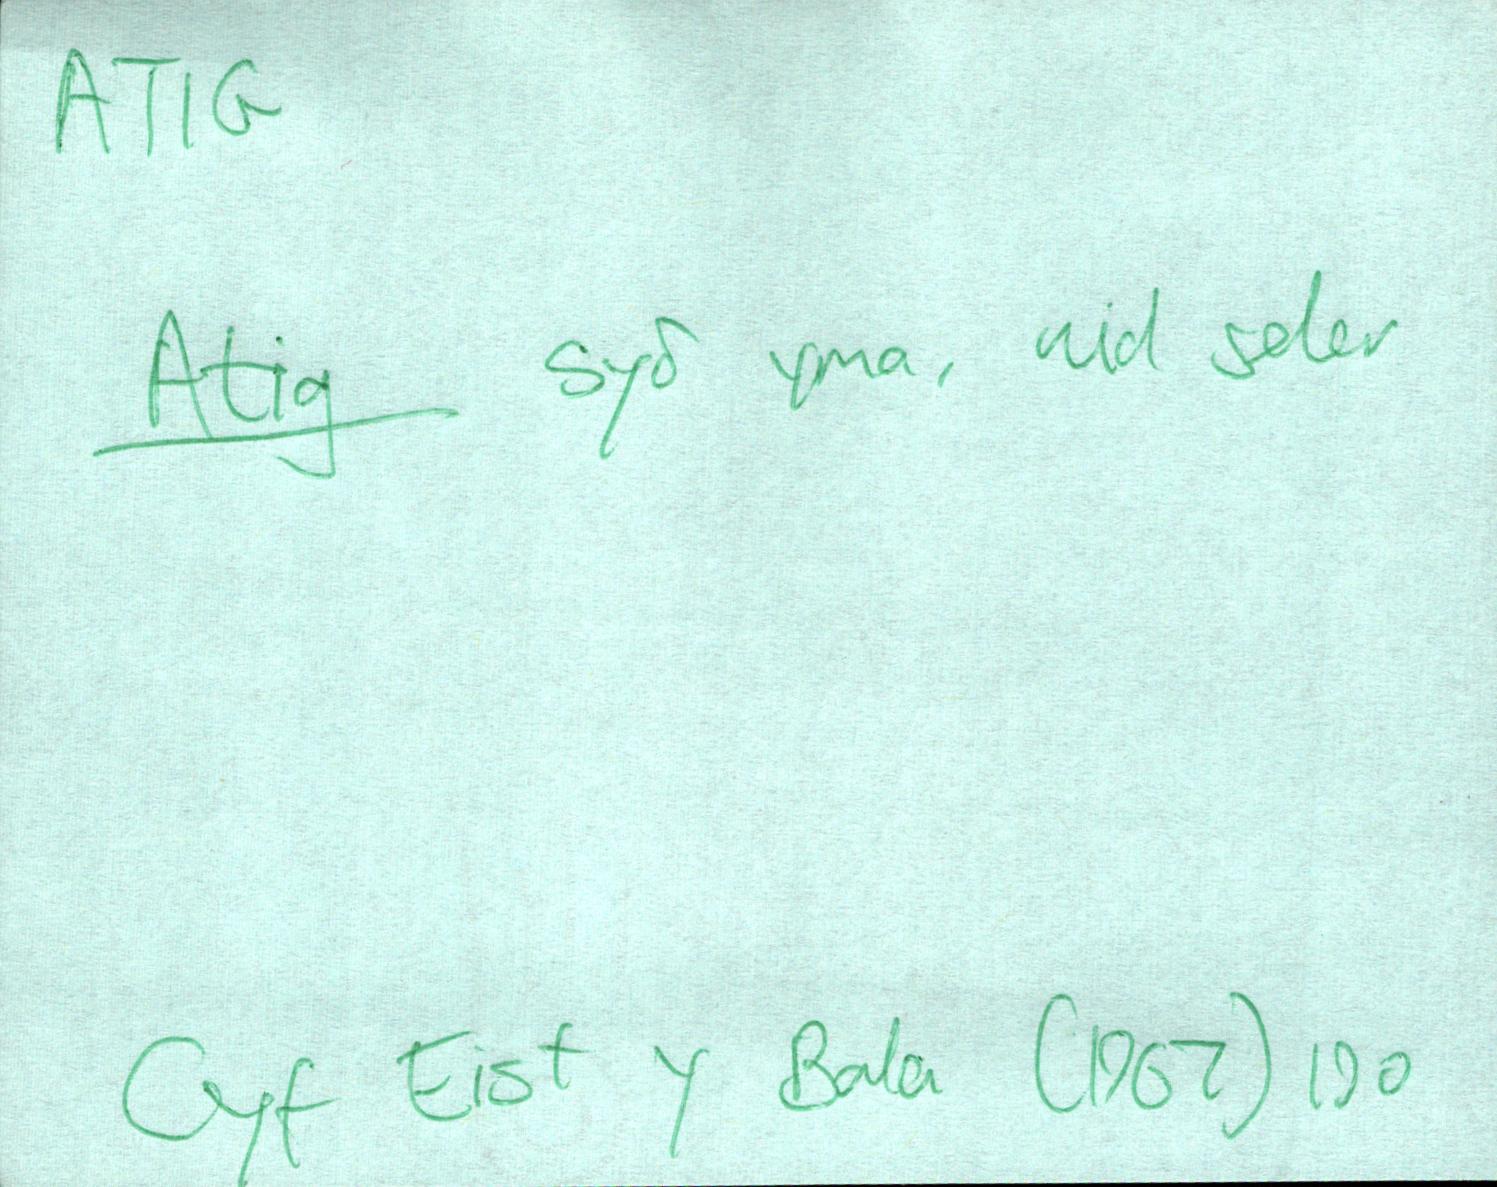 ATIG
Atig syδ yma, nid seler
Cyf Eist y Bala (1967) 190